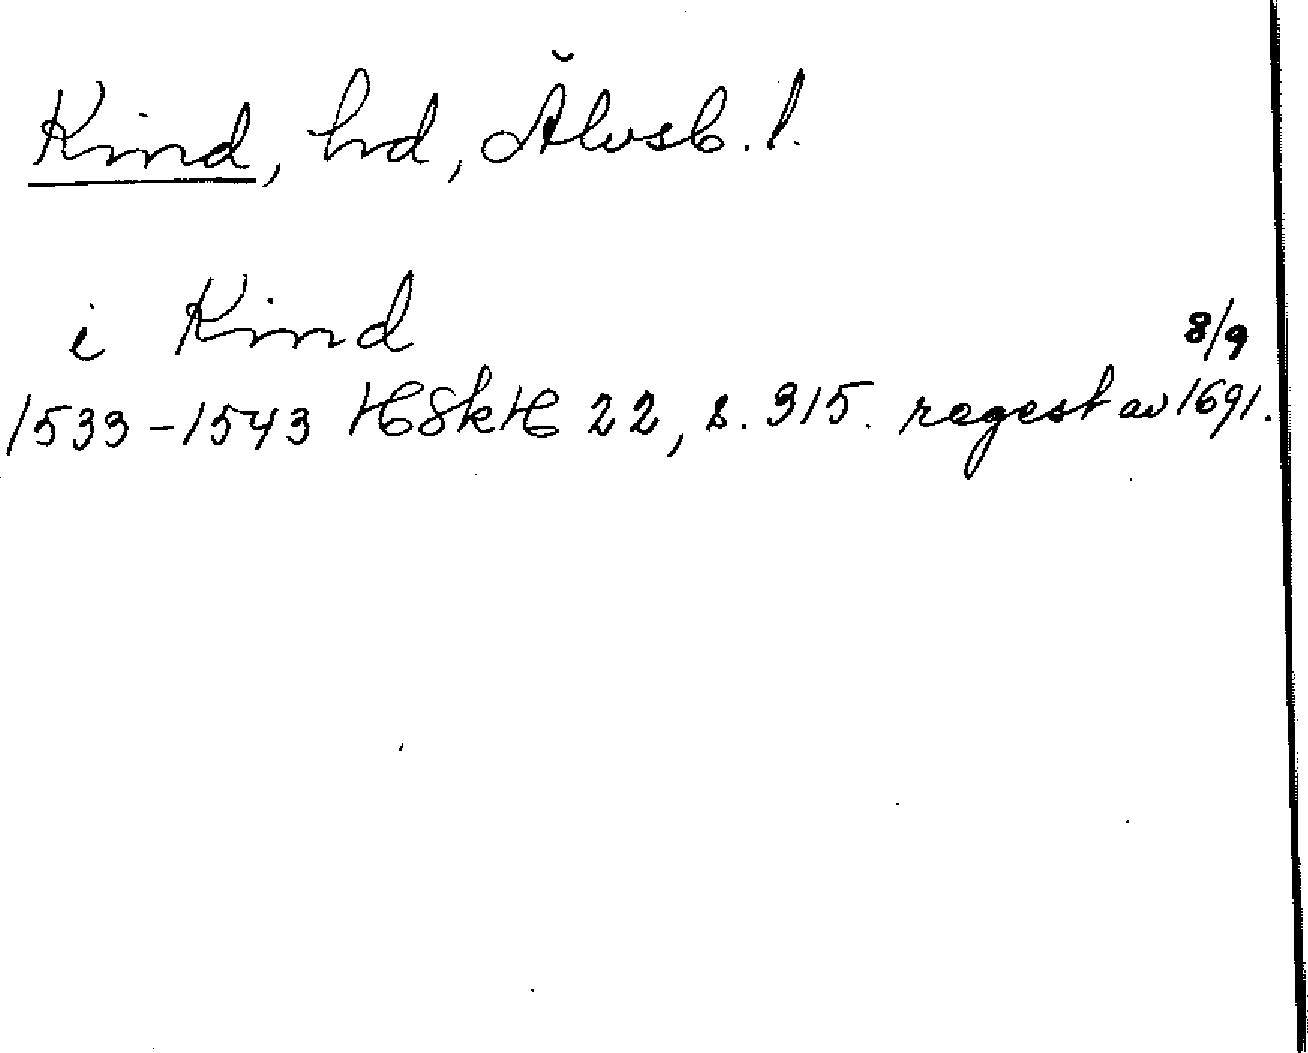 Kind, hd, Älvsb. l.
i Kind
8/9
1533-1543 HSkH 22, s. 315. regest av 1691.